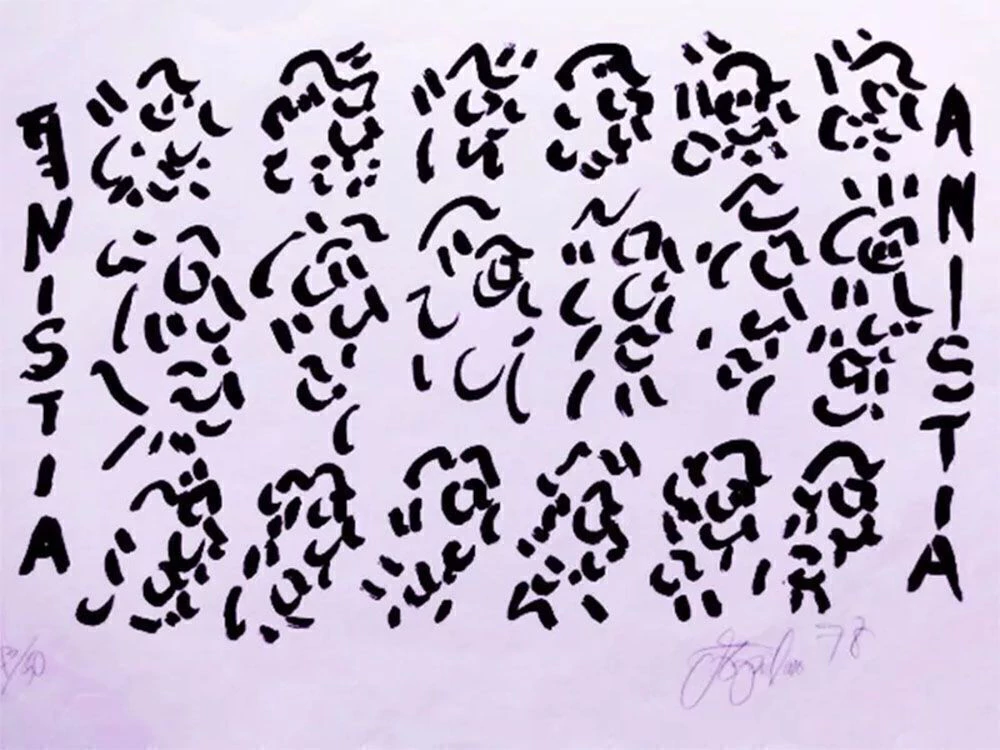 ANISTIA
ANISTIA
78